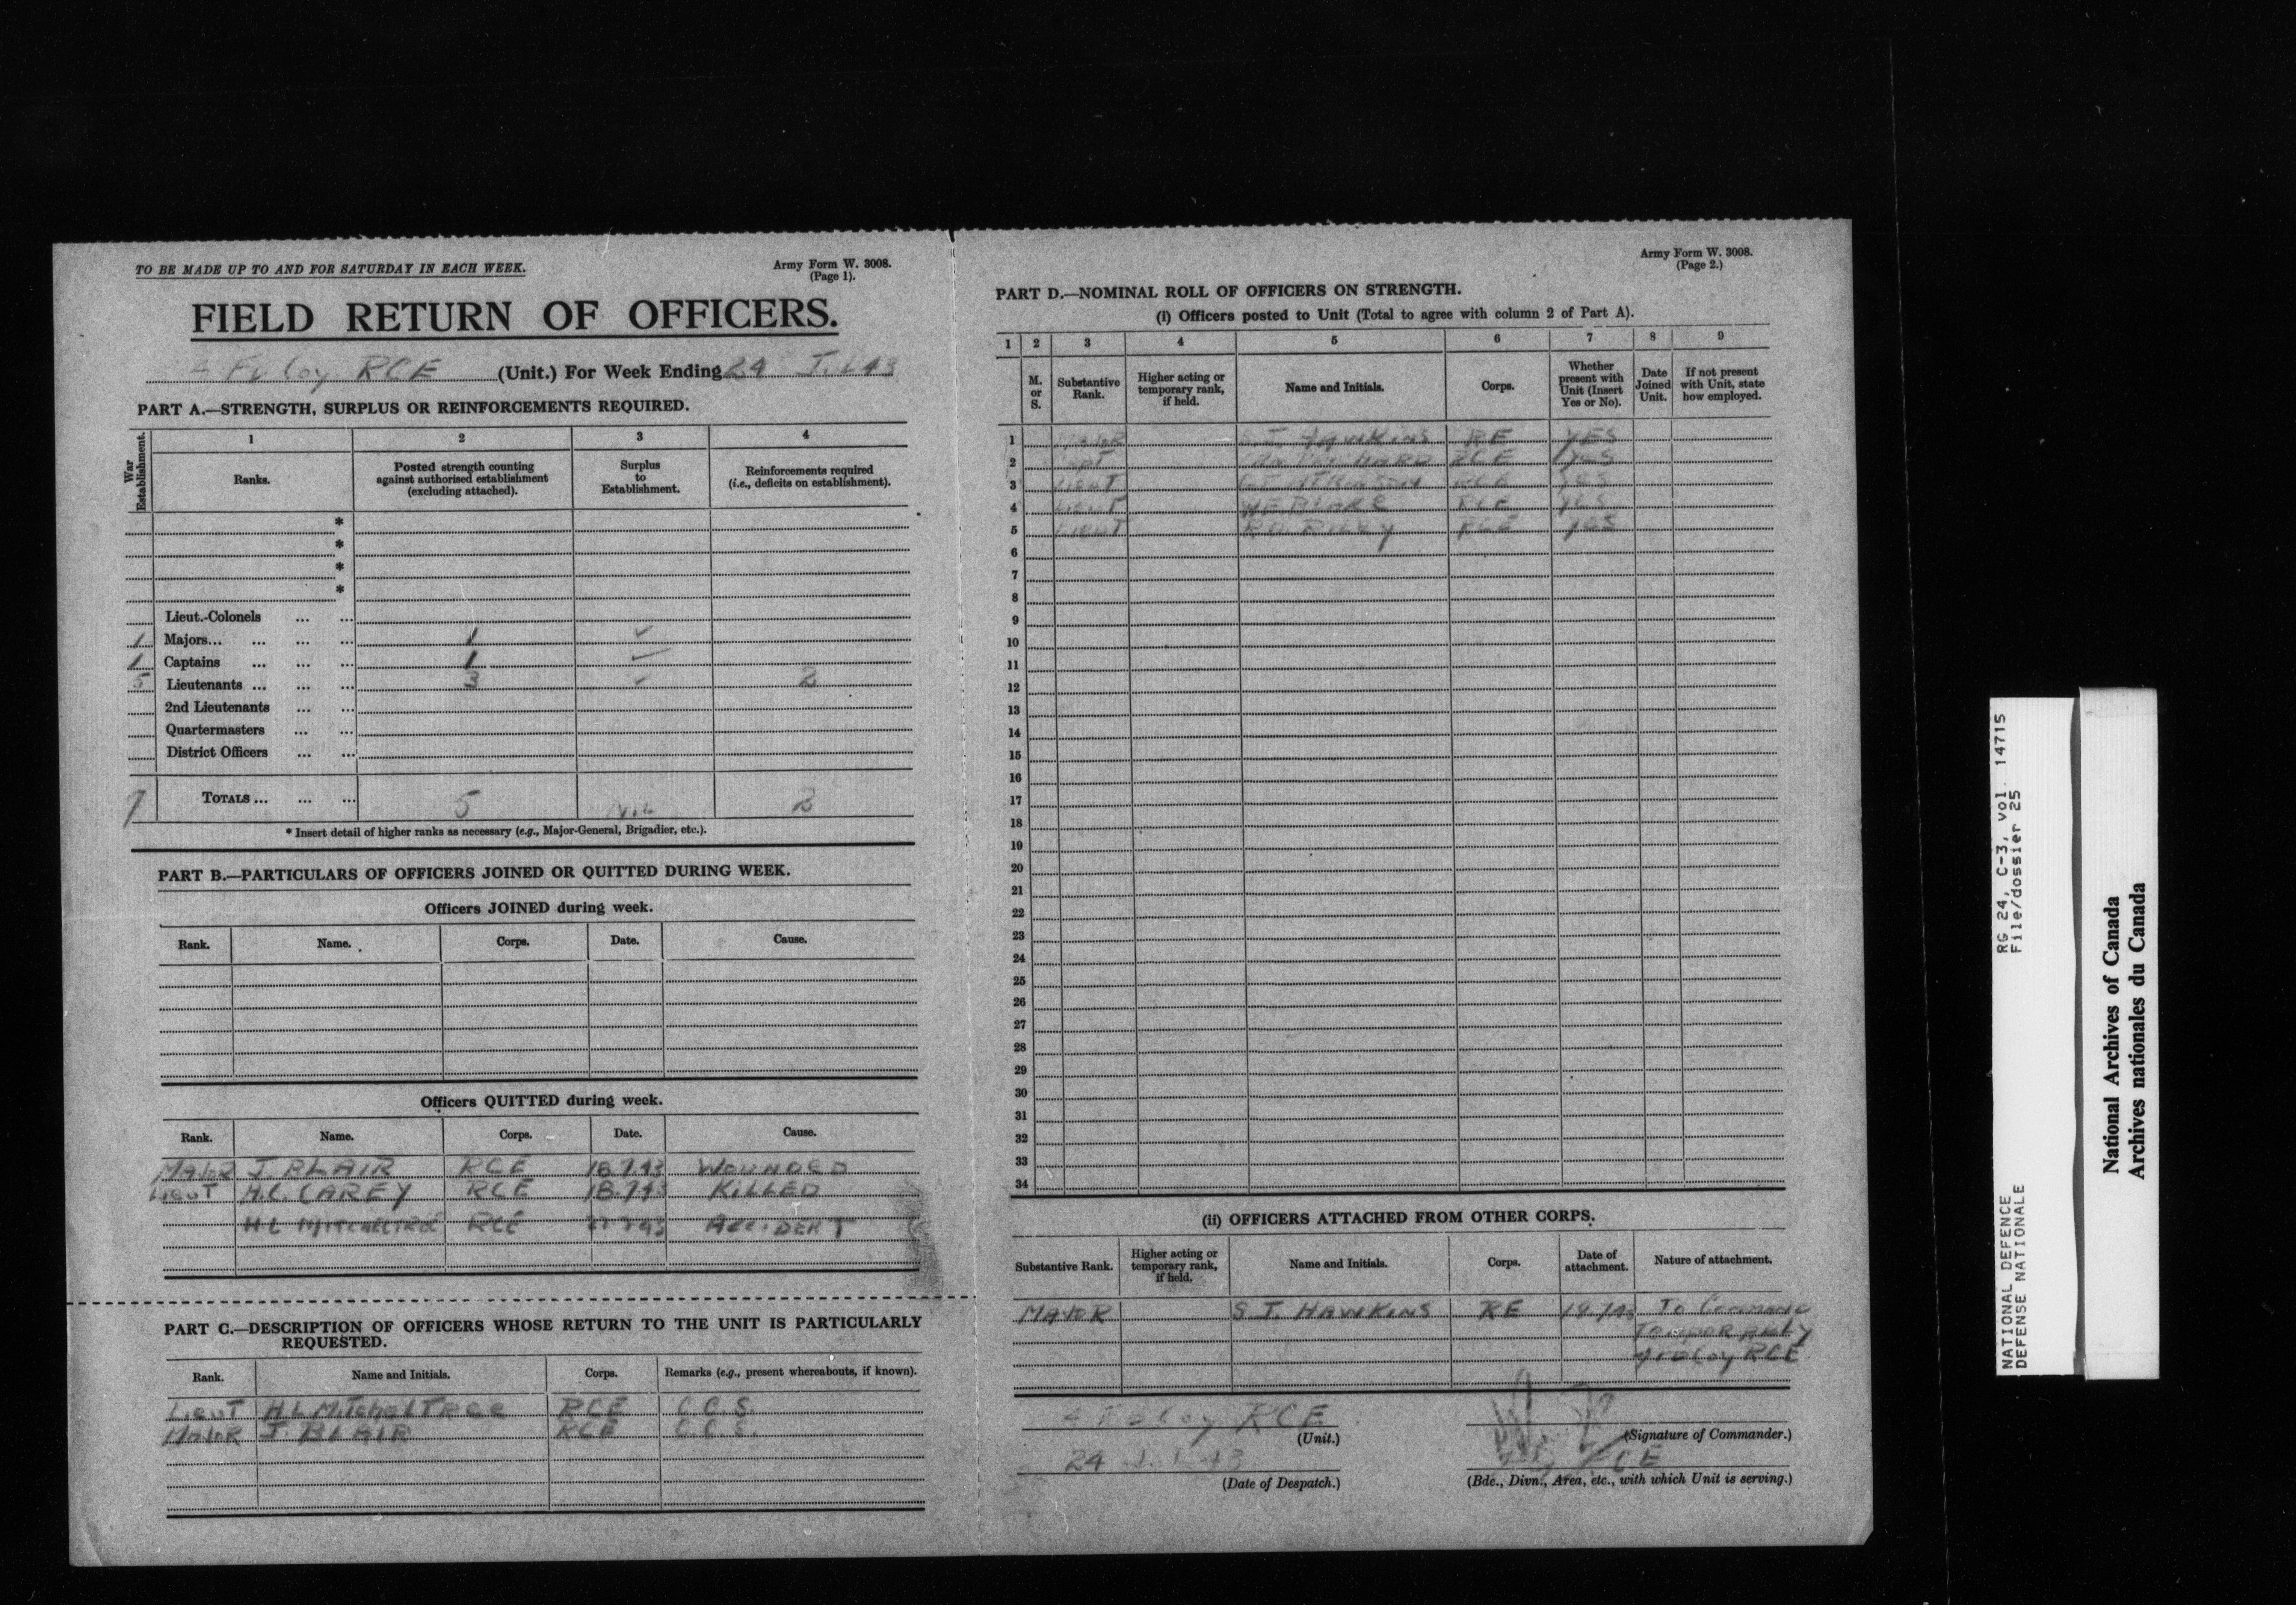 TO BE MADE UP TO AND FOR SATURDAY IN EACH WEEK.
Army Form W. 3008.
(Page 1).
FIELD RETURN OF OFFICERS.
4 Fd Coy RCE (Unit.) For Week Ending 24 Jul 43
PART A.—STRENGTH, SURPLUS OR REINFORCEMENTS REQUIRED.
War Establishment.
1 2 3 4
Ranks.
Posted strength counting against authorised establishment (excluding attached).
Surplus to Establishment.
Reinforcements required (i.e., deficits on establishment).
*
*
*
*
Lieut.-Colonels ... ...
1 Majors... ... ... ... 1 ✓
1 Captains ... ... ... 1 ✓
5 Lieutenants ... ... ... 3 ✓ 2
2nd Lieutenants ... ...
Quartermasters ... ...
District Officers ... ...
7 TOTALS ... ... ... 5 Nil 2
* Insert detail of higher ranks as necessary (e.g., Major-General, Brigadier, etc.).
PART B.—PARTICULARS OF OFFICERS JOINED OR QUITTED DURING WEEK.
Officers JOINED during week.
Rank. Name. Corps. Date. Cause.
Officers QUITTED during week.
Rank. Name. Corps. Date. Cause.
MAJOR J. BLAIR RCE 18.7.43 WOUNDED
LIEUT H.C. CAREY RCE 18.7.43 KILLED
H L MITCHELTREE RCE ACCIDENT
PART C.—DESCRIPTION OF OFFICERS WHOSE RETURN TO THE UNIT IS PARTICULARLY
REQUESTED.
Rank. Name and Initials. Corps. Remarks (e.g., present whereabouts, if known).
Lieut H L MitchelTree RCE C.C.S.
MAJOR J. BLAIR RCE C.C.S.
Army Form W. 3008.
(Page 2.)
PART D.—NOMINAL ROLL OF OFFICERS ON STRENGTH.
(i) Officers posted to Unit (Total to agree with column 2 of Part A).
1 2 3 4 5 6 7 8 9
M. or S.
Substantive Rank.
Higher acting or temporary rank, if held.
Name and Initials.
Corps.
Whether present with Unit (Insert Yes or No).
Date Joined Unit.
If not present with Unit, state how employed.
1 MAJOR S.J. HAWKINS RE YES
2 CAPT RCE YES
3 LIEUT RCE YES
4 LIEUT RCE YES
5 LIEUT RILEY RCE YES
6
7
8
9
10
11
12
13
14
15
16
17
18
19
20
21
22
23
24
25
26
27
28
29
30
31
32
33
34
(ii) OFFICERS ATTACHED FROM OTHER CORPS.
Substantive Rank.
Higher acting or temporary rank, if held.
Name and Initials.
Corps.
Date of attachment.
Nature of attachment.
MAJOR S.J. HAWKINS RE To Command
Temporarily
4 Fd Coy RCE
4 Fd Coy RCE
(Unit.)
(Signature of Commander.)
24 Jul 43
RCE
(Date of Despatch.)
(Bde., Divn., Area, etc., with which Unit is serving.)
NATIONAL DEFENCE
DEFENSE NATIONALE
RG 24, C-3, vol. 14715
File/dossier 25
National Archives of Canada
Archives nationales du Canada